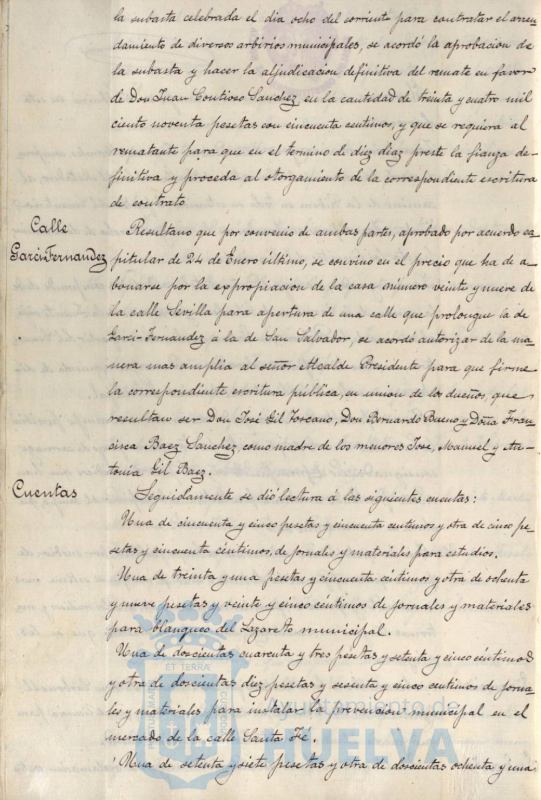 la subasta celebrada el dia ocho del corriente para contratar el arren-
damiento de diversos arbirios municipales, se acordó la aprobacion de
la subasta y hacer la aljudicacion definitiva del remate en favor
de Don Juan Contioso Sanchez en la cantidad de treinta y cuatro mil
ciento noventa pesetas con cincuenta centimos, y que se requiera al
rematante para que en el termino de diez diaz preste la fianza de-
finitiva y proceda al otorgamiento de la correspondiente escritura
de contrato.
Calle
Garci-Fernandez
Resultano que por convenio de ambas partes, aprobado por acuerdo ca-
pitular de 24 de Enero último, se convino en el precio que ha de a-
bonarse por la expropiacion de la casa número veinte y nueve de
la calle Sevilla para apertura de una calle que prolongue la de
Garci-Fernandez á la de San Salvador, se acordó autorizar de la ma-
nera mas amplia al señor Alcalde Presidente para que firme
la correspondiente escritura pública, en union de los dueños, que
resultan ser Don José Gil Toscano, Don Bernardo Bueno y Doña Fran-
cisca Baez Sanchez, como madre de los menores José, Manuel y An-
tonia Gil Baez.
Cuentas
Seguidamente se dió lectura á las siguientes cuentas:
Una de cincuenta y cinco pesetas y cincuenta centimos y otra de cinco pe-
setas y cincuenta céntimos, de jornales y materiales para estudios.
Una de treinta y una pesetas y cincuenta céntimos y otra de ochenta
y nueve pesetas y veinte y cinco céntimos de jornales y materiales
para blanqueo del Lazareto municipal.
Una de doscientas cuarenta y tres pesetas y setenta y cinco céntimos
y otra de doscientas diez pesetas y sesenta y cinco centimos de jorna-
les y materiales para instalar la prevencion municipal en el
mercado de la calle Santa Fé.
Una de setenta y siete pesetas y otra de doscientas ochenta y una
Ayuntamiento de
HUELVA